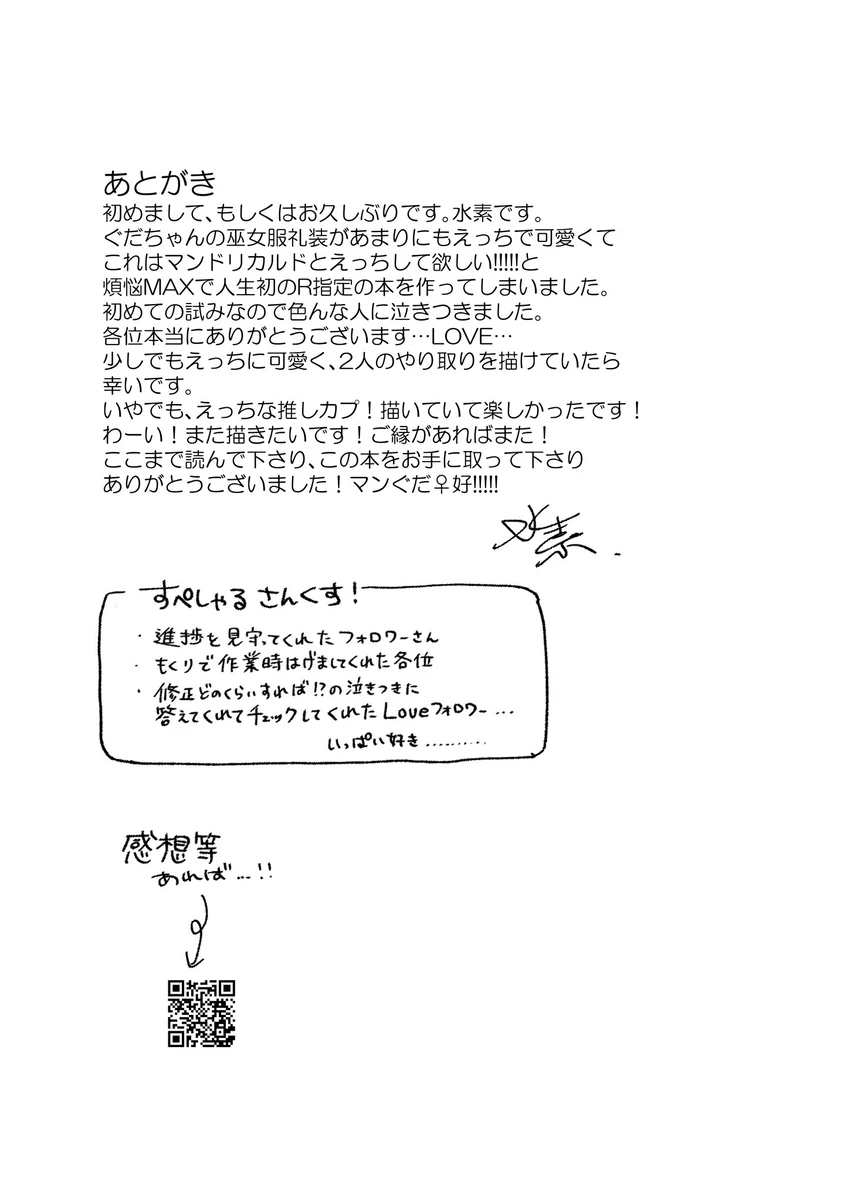 あとがき
初めまして、もしくはお久しぶりです。水素です。
ぐだちゃんの巫女服礼装があまりにもえっちで可愛くて
これはマンドリカルドとえっちして欲しい!!!!!と
煩悩MAXで人生初のR指定の本を作ってしまいました。
初めての試みなので色んな人に泣きつきました。
各位本当にありがとうございます…LOVE…
少しでもえっちに可愛く、2人のやり取りを描けていたら
幸いです。
いやでも、えっちな推しカプ！描いていて楽しかったです！
わーい！また描きたいです！ご縁があればまた！
ここまで読んで下さり、この本をお手に取って下さり
ありがとうございました！マンぐだ♀好!!!!!
水素.
すぺしゃる さんくす！
・進捗を見守ってくれたフォロワーさん
・もくりで作業時はげましてくれた各位
・修正どのくらいすれば!?の泣きつきに
答えてくれてチェックしてくれたLoveフォロワー…
いっぱい好き………
感想等
あれば…!!